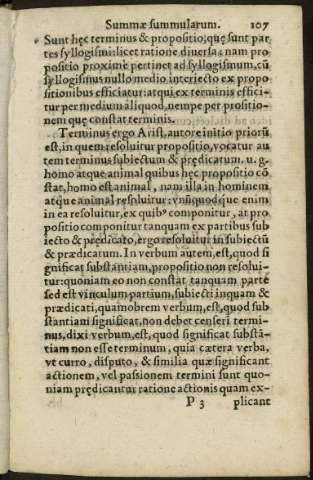 Summæ summularum. 107
Sunt hęc terminus & propositio, quę sunt par
tes syllogismi: licet ratione diuersa: nam pro
positio proximè pertinet ad syllogismum, cū
syllogismus nullo medio interiecto ex propo
sitionibus efficiatur: atqui ex terminis effici-
tur per medium aliquod, nempe per prositio-
nem quę constat terminis.
Terminus ergo Arist. autore initio priorū
est, in quem resoluitur propositio, vocatur au
tem terminus subiectum & prędicatum. u. g.
homo atque animal quibus hęc propositio cō
stat, homo est animal, nam illa in hominem
atque animal resoluitur: vnūquodque enim
in ea resoluitur, ex quibꝰ componitur, at pro
positio componitur tanquam ex partibus sub
iecto & prędicato, ergo resoluitur in subiectū
& prædicatum. In verbum autem, est, quod si
gnificat substantiam, propositio non resolui-
tur: quoniam eo non constat tanquam parte
sed est vinculum partium, subiecti inquam &
prædicati, quamobrem verbum, est, quod sub
stantiam significat, non debet censeri termi-
nus, dixi verbum, est, quod significat substā-
tiam non esse terminum, quia cætera verba,
vt curro, disputo, & similia quæ significant
actionem, vel passionem termini sunt quo-
niam prędicantur ratione actionis quam ex-
P 3 plicant